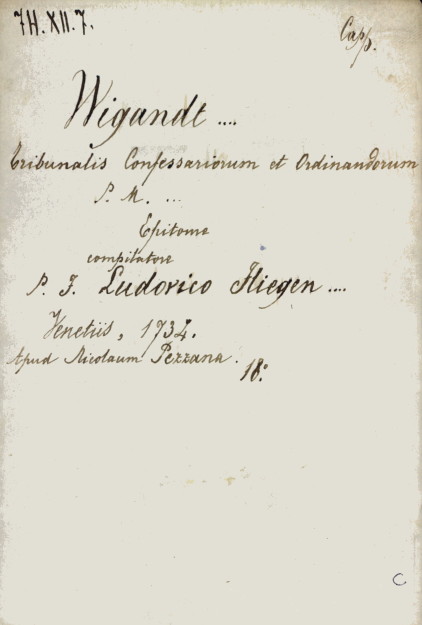 7H.XII.7.
Capp.
Wigandt ....
Tribunalis Confessariorum et Ordinandorum
P. M. ...
Epitome
compilatore
P. F. Ludovico Fliegen ....
Venetiis, 1734.
Apud Nicolaum Pezzana.
18.°
C